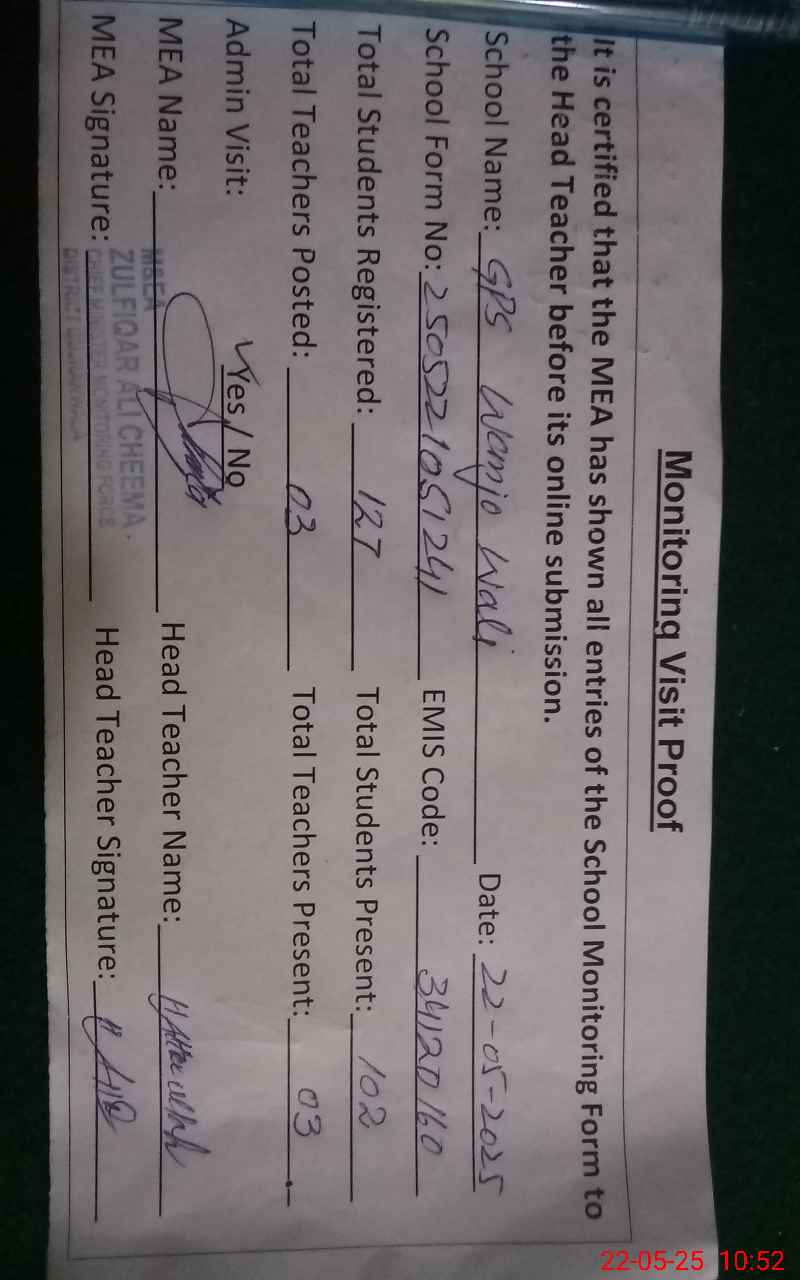 Monitoring Visit Proof
It is certified that the MEA has shown all entries of the School Monitoring Form to
the Head Teacher before its online submission.
School Name: GPS Wanjo Wali Date: 22-05-2025
School Form No: 2505221051241 EMIS Code: 34120160
Total Students Registered: 127 Total Students Present: 102
Total Teachers Posted: 03 Total Teachers Present: 03
Admin Visit: Yes / No
MEA Name: Head Teacher Name:
M&EA
ZULFIQAR ALI CHEEMA
MEA Signature: Head Teacher Signature:
CHIEF MINISTER MONITORING FORCE
DISTRICT
22-05-25 10:52